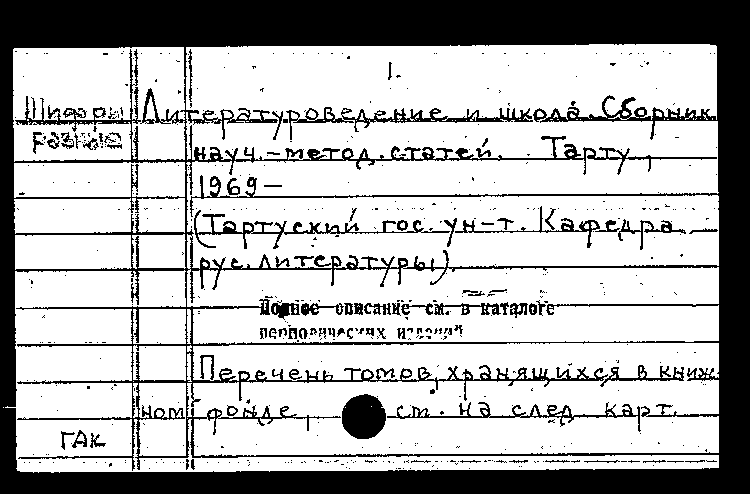 1.
Шифры Литературоведение и школа. Сборник
разные науч.-метод. статей. Тарту,
1969-
(Тартуский гос. ун-т. Кафедра
рус. литературы).
Полное описание см. в каталоге
периодических изданий
Перечень томов, хранящихся в книж-
ном фонде, см. на след карт.
ГАК